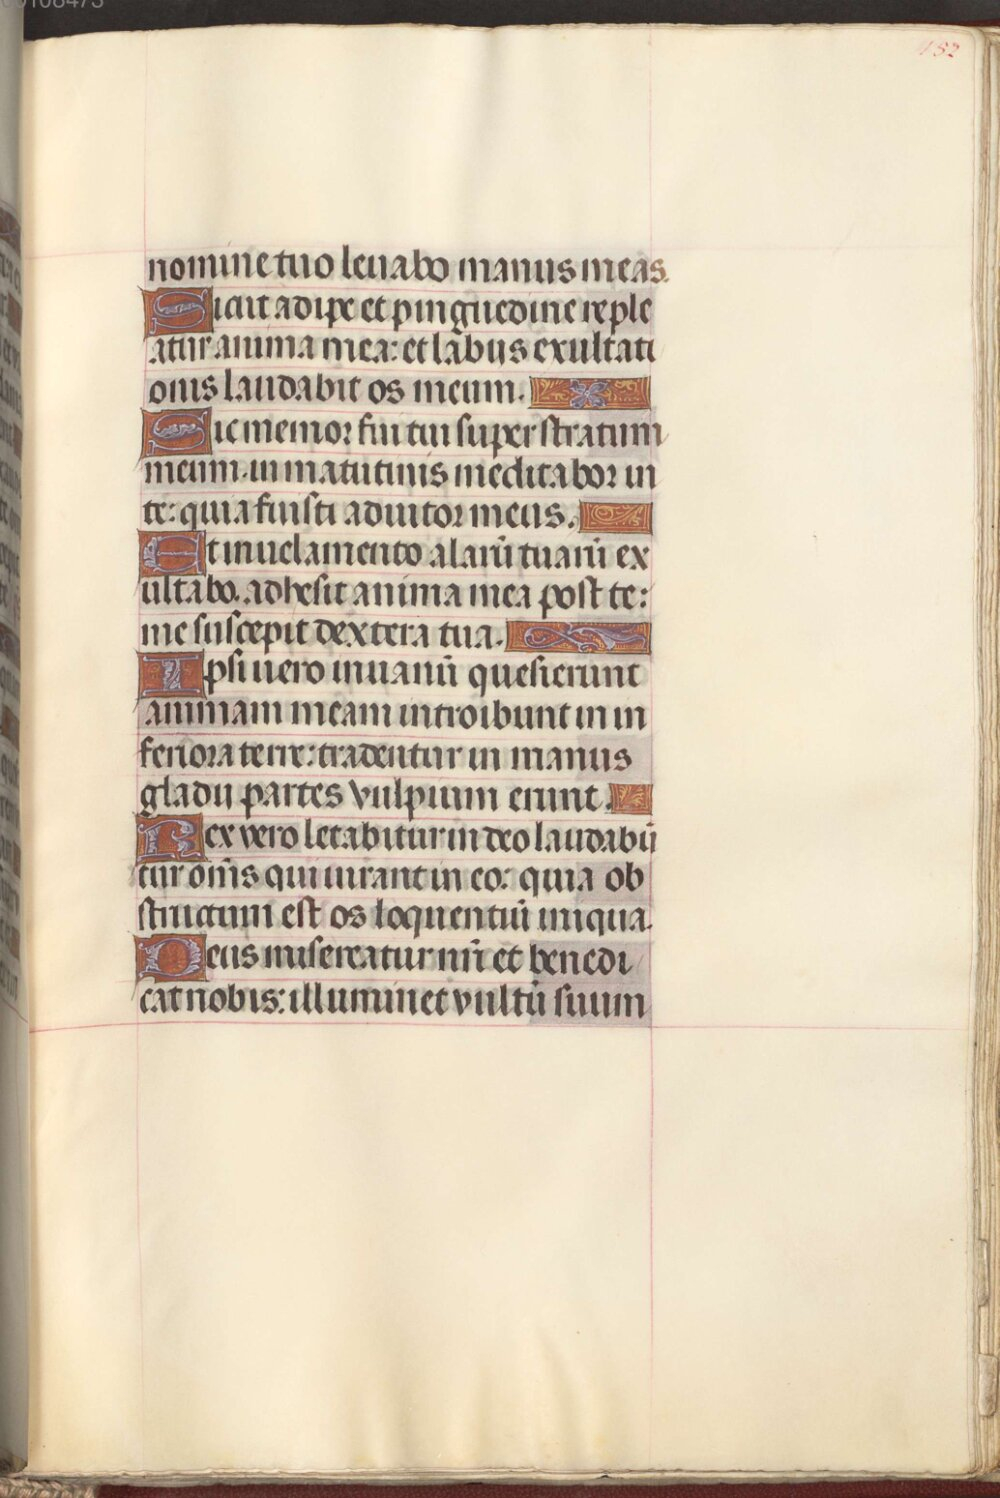 182
nomine tuo leuabo manus meas.
Sicut adipe et pinguedine reple
atur anima mea: et labijs exultati
onis laudabit os meum.
Sic memor fui tui super stratum
meum. in matutinis meditabor in
te: quia fuisti adiutor meus.
Et in uelamento alarū tuarū ex
ultabo. adhesit anima mea post te:
me suscepit dextera tua.
Ipsi uero in uanū quesierunt
animam meam introibunt in in
feriora terre: tradentur in manus
gladii partes vulpium erunt.
Rex vero letabitur in deo laudabū
tur om̄s qui iurant in eo: quia ob
structum est os loquentiū iniqua.
Deus misereatur nr̄i et benedi
cat nobis: illuminet vultū suum